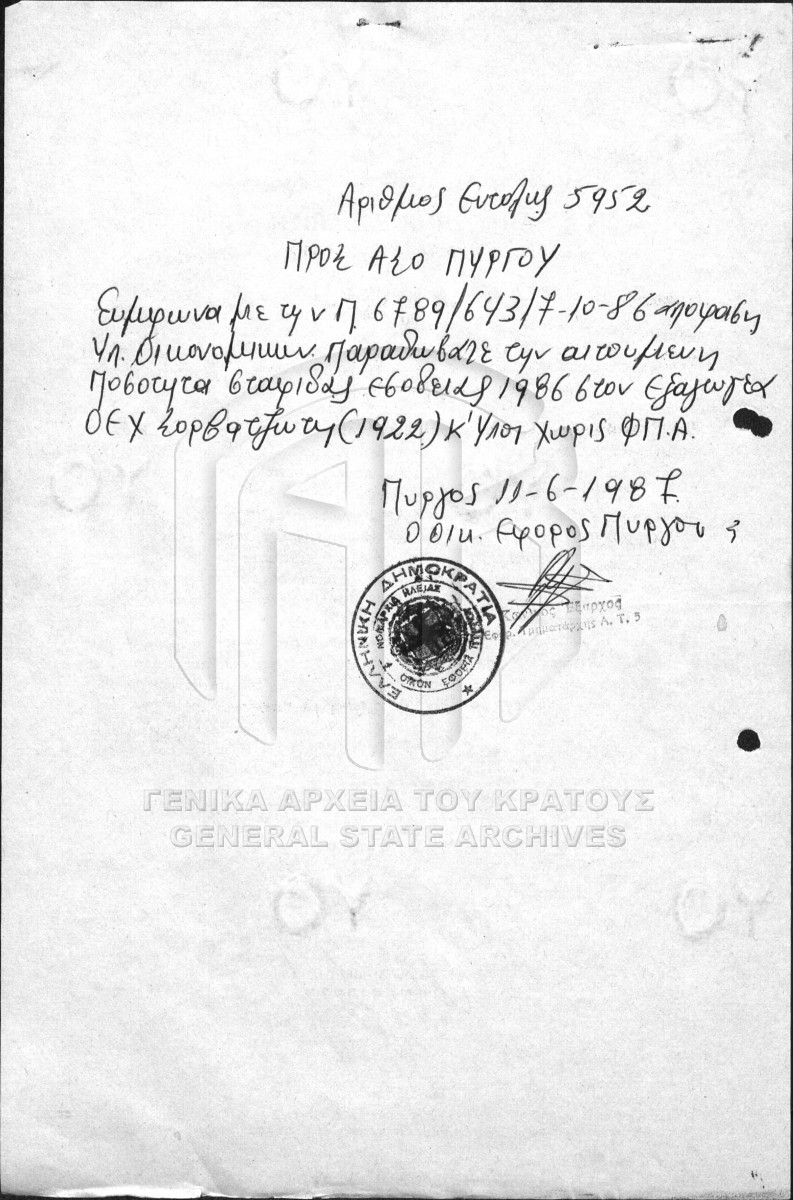 Αριθμος Εντολης 5952
ΠΡΟΣ ΑΣΟ ΠΥΡΓΟΥ
Συμφωνα με την Π. 6789/643/7-10-86 αποφαση
Υπ. Οικονομικων. Παραδωσατε την αιτουμενη
Ποσοτητα σταφιδας εσοδειας 1986 στον Εξαγωγεα
(1922) Κ' χωρις ΦΠ.Α.
Πυργος 11-6-1987.
Ο Οικ. Εφορος Πυργου
Έξαρχος
Τμηματάρχης Α. Τ. 5
ΕΛΛΗΝΙΚΗ ΔΗΜΟΚΡΑΤΙΑ
ΝΟΜΑΡΧΙΑ ΗΛΕΙΑΣ
ΟΙΚΟΝ ΕΦΟΡΙΑ
ΓΕΝΙΚΑ ΑΡΧΕΙΑ ΤΟΥ ΚΡΑΤΟΥΣ
GENERAL STATE ARCHIVES